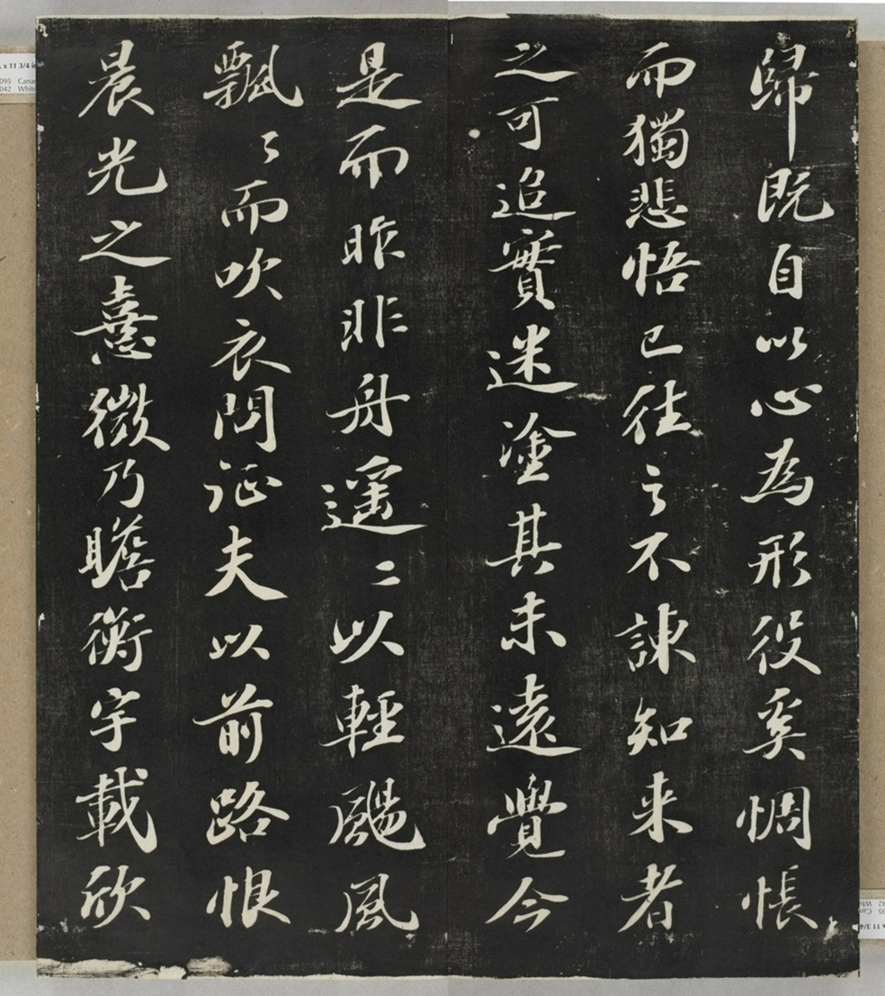 歸既自以心為形役奚惆悵
而獨悲悟已往之不諫知来者
之可追實迷塗其未遠覺今
是而昨非舟遥〻以輕颺風
飄〻而吹衣問征夫以前路恨
晨光之熹微乃瞻衡宇載欣
x 11 3/4